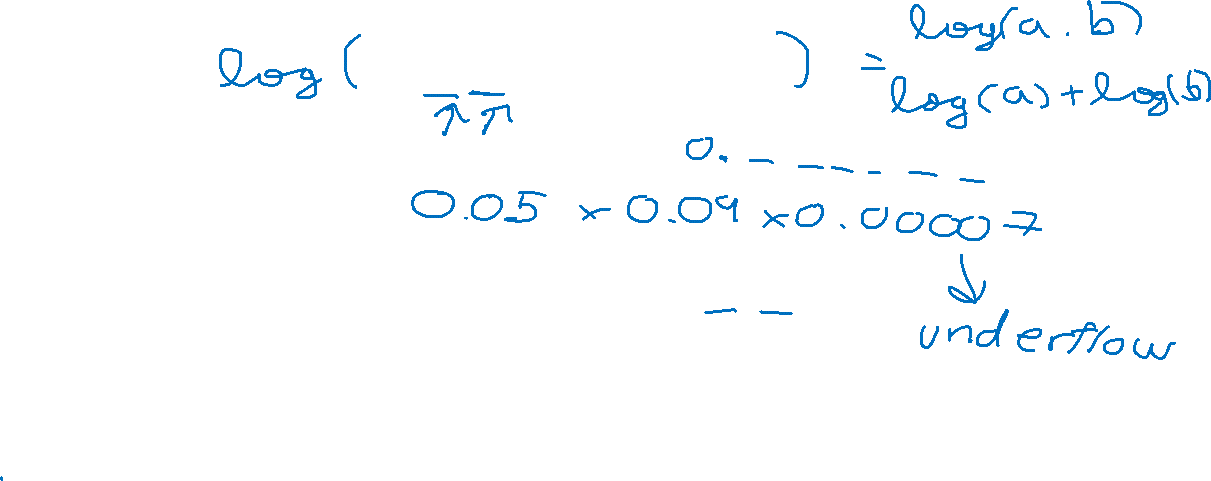 log(a.b)
log( ππ ) =
log(a)+log(b)
0. _ _ _ _ _ _
0.05 × 0.09 × 0.00007
_ _
underflow